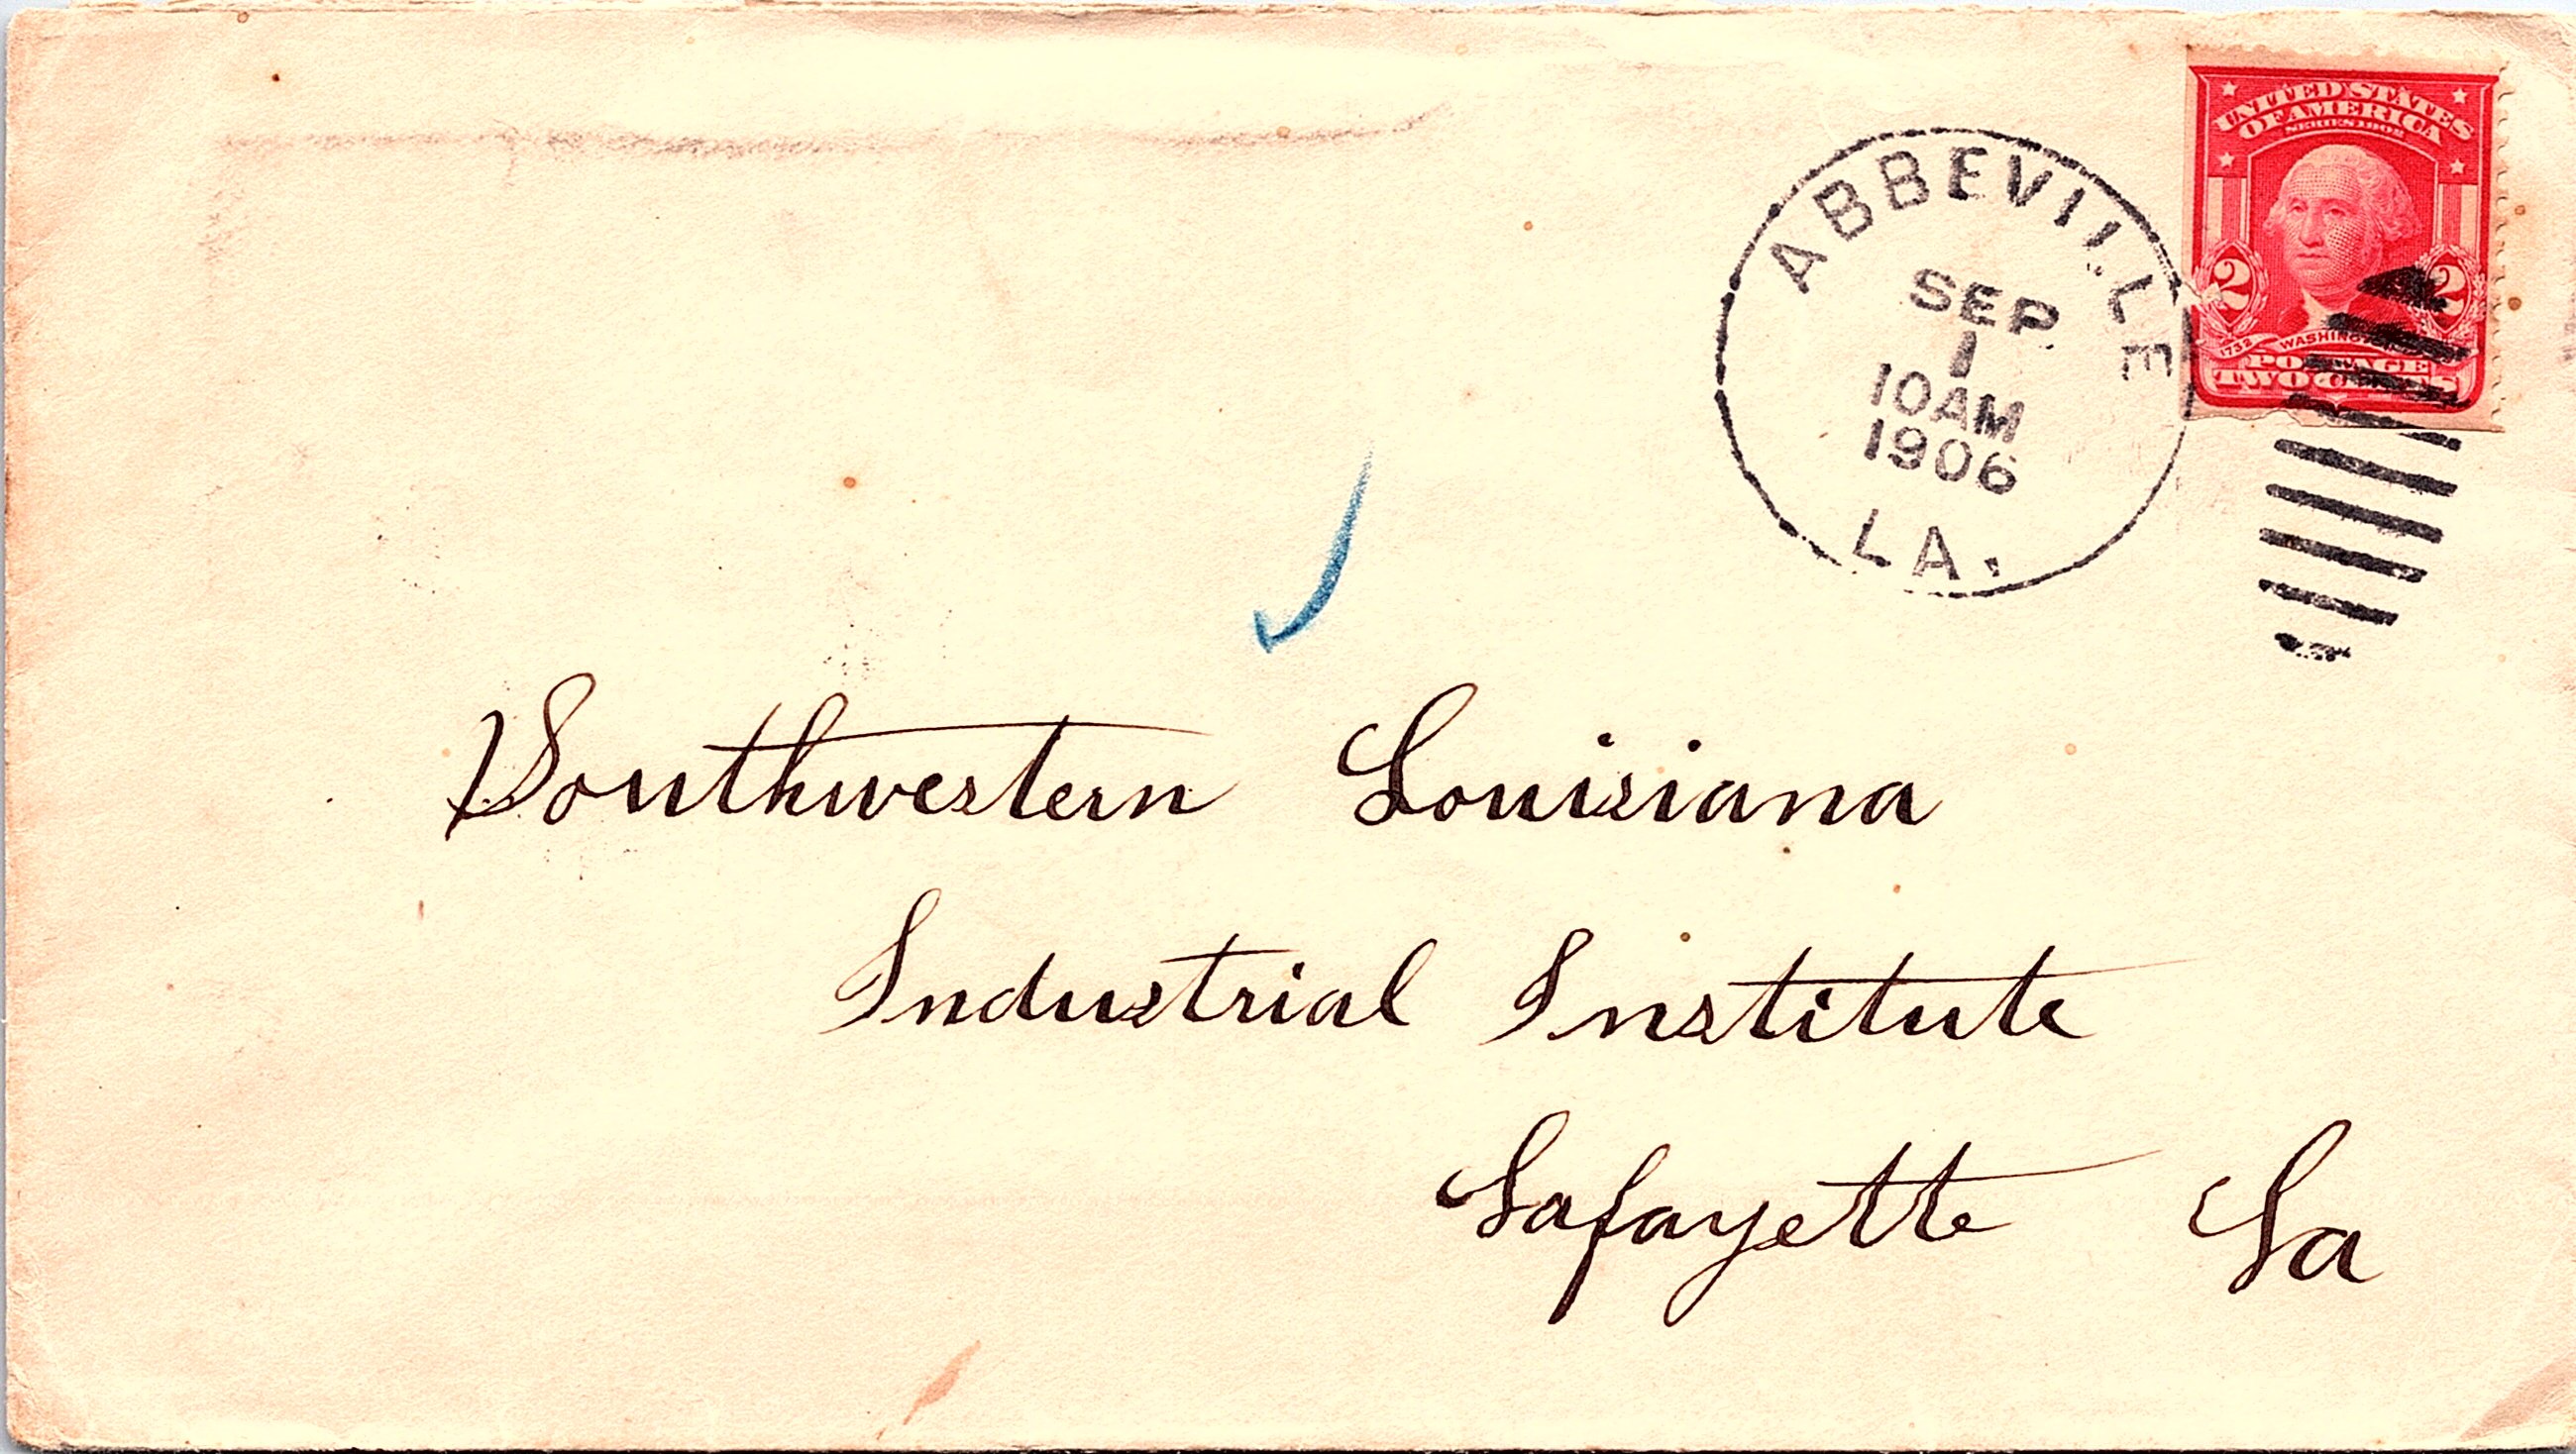 UNITED STATES
OF AMERICA
SERIES 1902
2 2
1732 WASHING
POSTAGE
TWO CENTS
ABBEVILLE
SEP
1
10AM
1906
LA.
Southwestern Louisiana
Industrial Institute
Lafayette La